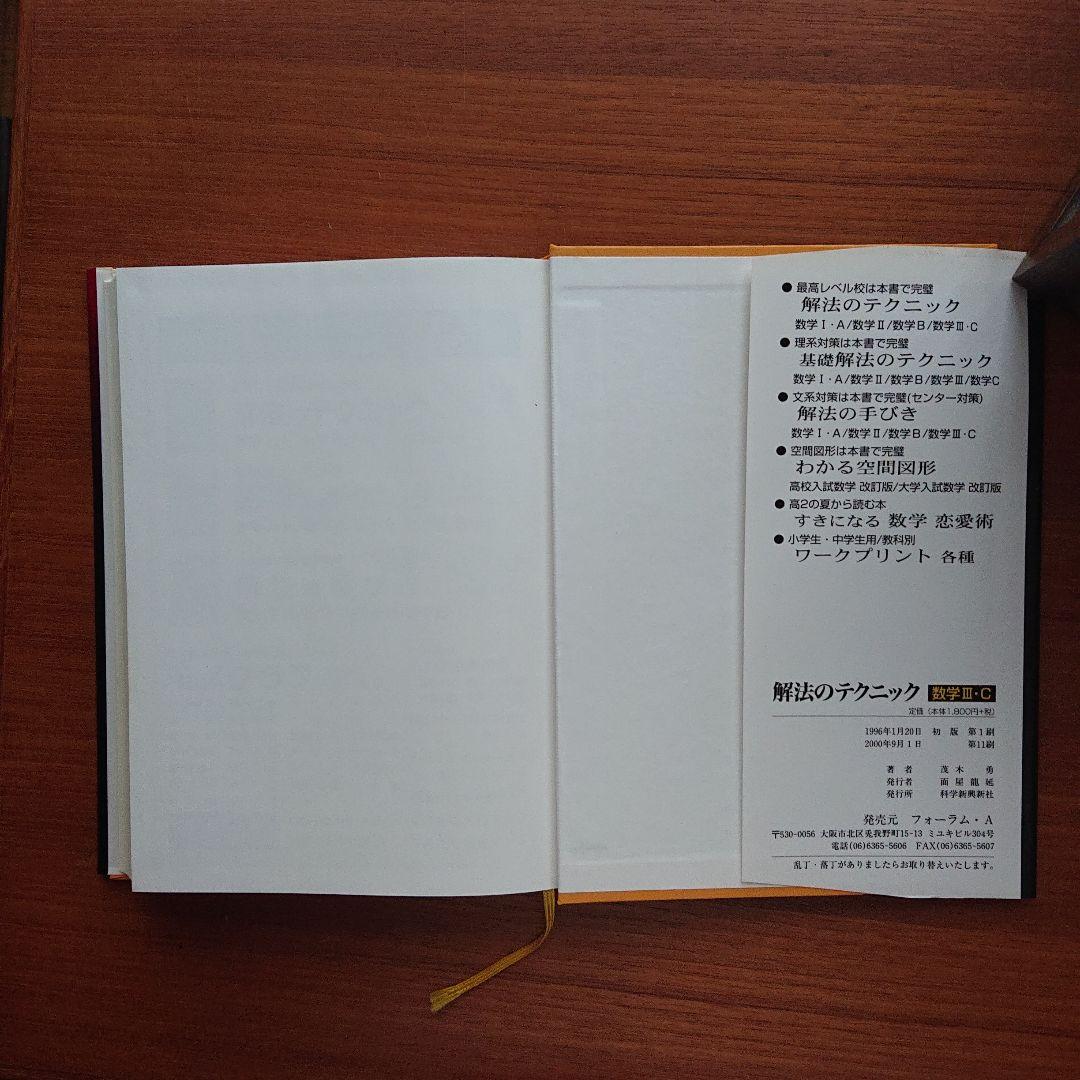 ● 最高レベル校は本書で完璧
解法のテクニック
数学Ⅰ・A/数学Ⅱ/数学B/数学Ⅲ・C
● 理系対策は本書で完璧
基礎解法のテクニック
数学Ⅰ・A/数学Ⅱ/数学B/数学Ⅲ/数学C
● 文系対策は本書で完璧(センター対策)
解法の手びき
数学Ⅰ・A/数学Ⅱ/数学B/数学Ⅲ・C
● 空間図形は本書で完璧
わかる空間図形
高校入試数学 改訂版/大学入試数学 改訂版
● 高2の夏から読む本
すきになる 数学 恋愛術
● 小学生・中学生用/教科別
ワークプリント 各種
解法のテクニック 数学Ⅲ・C
定価（本体1,800円+税）
1996年1月20日 初 版 第1刷
2000年9月1日 第11刷
著 者 茂 木 勇
発行者 面 屋 龍 延
発行所 科学新興新社
発売元 フォーラム・A
〒530-0056 大阪市北区兎我野町15-13 ミユキビル304号
電話(06)6365-5606 FAX(06)6365-5607
乱丁・落丁がありましたらお取り替えいたします。